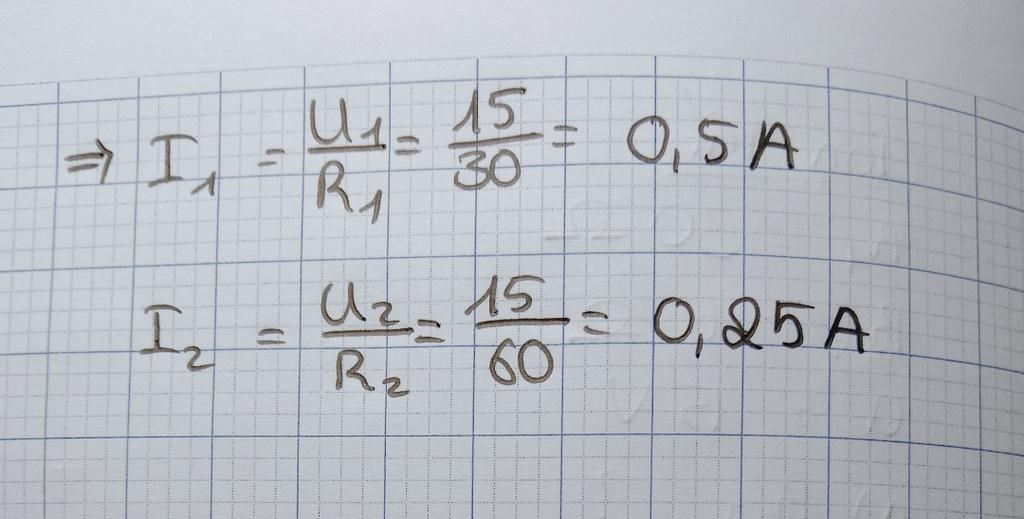 ⇒ I₁ = U₁/R₁ = 15/30 = 0,5 A
I₂ = U₂/R₂ = 15/60 = 0,25 A